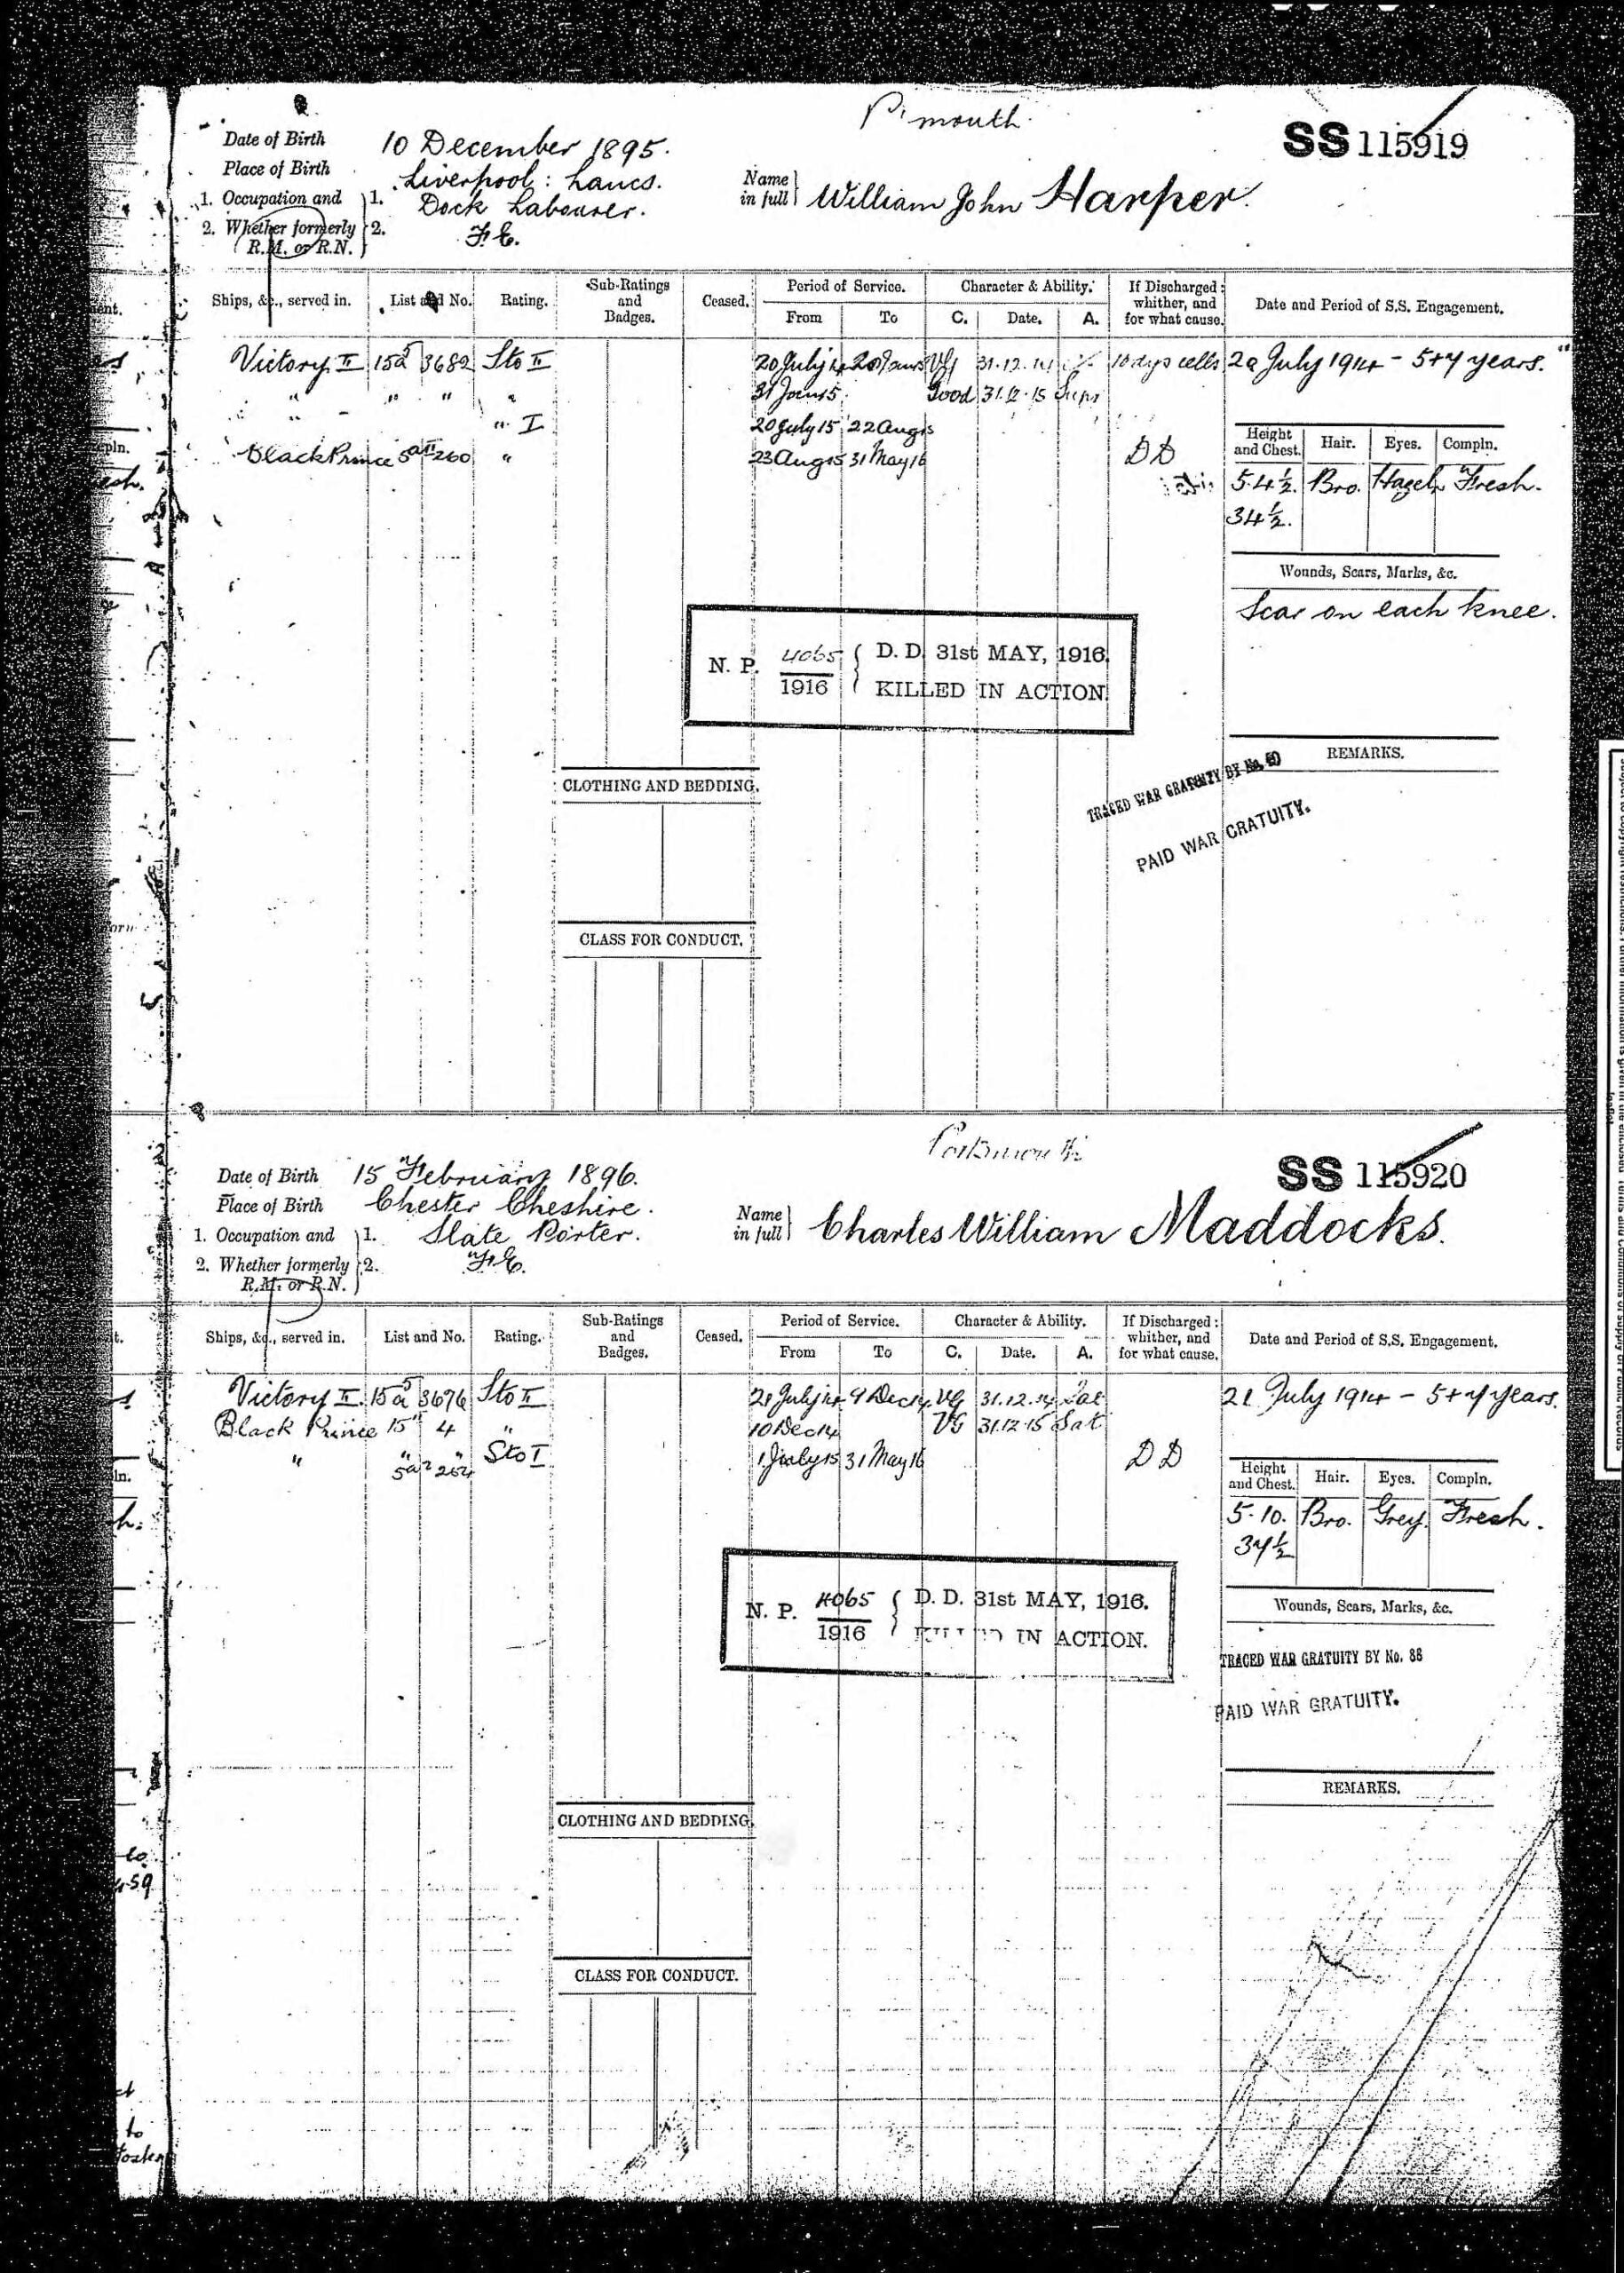 P'mouth
SS 115919
Date of Birth 10 December 1895.
Place of Birth Liverpool : Lancs.
Name in full William John Harper.
1. Occupation and 1. Dock Labourer.
2. Whether formerly R.M. or R.N. 2. F.E.
Ships, &c., served in. List and No. Rating. Sub-Ratings and Badges. Ceased. Period of Service. Character & Ability. If Discharged: whither, and for what cause. Date and Period of S.S. Engagement.
From To C. Date. A.
Victory II 15a5 3682 Sto II 20 July 14 20 Jan 15 VG 31.12.14 10 dys cells 20 July 1914 - 5+7 years.
" " " " 31 Jan 15 Good 31.12.15 Supr
" " I 20 July 15 22 Aug 15
Black Prince 5a II 260 " 23 Aug 15 31 May 16 DD
Height and Chest. Hair. Eyes. Compln.
5.4½. Bro. Hazel Fresh.
34½.
Wounds, Scars, Marks, &c.
Scar on each knee.
N. P. 4065/1916 { D. D. 31st MAY, 1916.
KILLED IN ACTION.
REMARKS.
TRACED WAR GRATUITY BY No.
PAID WAR GRATUITY.
CLOTHING AND BEDDING.
CLASS FOR CONDUCT.
Portsmouth
SS 115920
Date of Birth 15 February 1896.
Place of Birth Chester Cheshire.
Name in full Charles William Maddocks.
1. Occupation and 1. Slate Porter.
2. Whether formerly R.M. or R.N. 2. F.E.
Ships, &c., served in. List and No. Rating. Sub-Ratings and Badges. Ceased. Period of Service. Character & Ability. If Discharged: whither, and for what cause. Date and Period of S.S. Engagement.
From To C. Date. A.
Victory II. 15a5 3676 Sto II 21 July 14 9 Dec 14 VG 31.12.14 Sat 21 July 1914 - 5+7 years.
Black Prince 15" 4 " 10 Dec 14 VG 31.12.15 Sat
" " " Sto I 1 July 15 31 May 16 DD
5a2 254
Height and Chest. Hair. Eyes. Compln.
5.10. Bro. Grey. Fresh.
37½
Wounds, Scars, Marks, &c.
N. P. 4065/1916 { D. D. 31st MAY, 1916.
KILLED IN ACTION.
TRACED WAR GRATUITY BY No. 88
PAID WAR GRATUITY.
REMARKS.
CLOTHING AND BEDDING.
CLASS FOR CONDUCT.